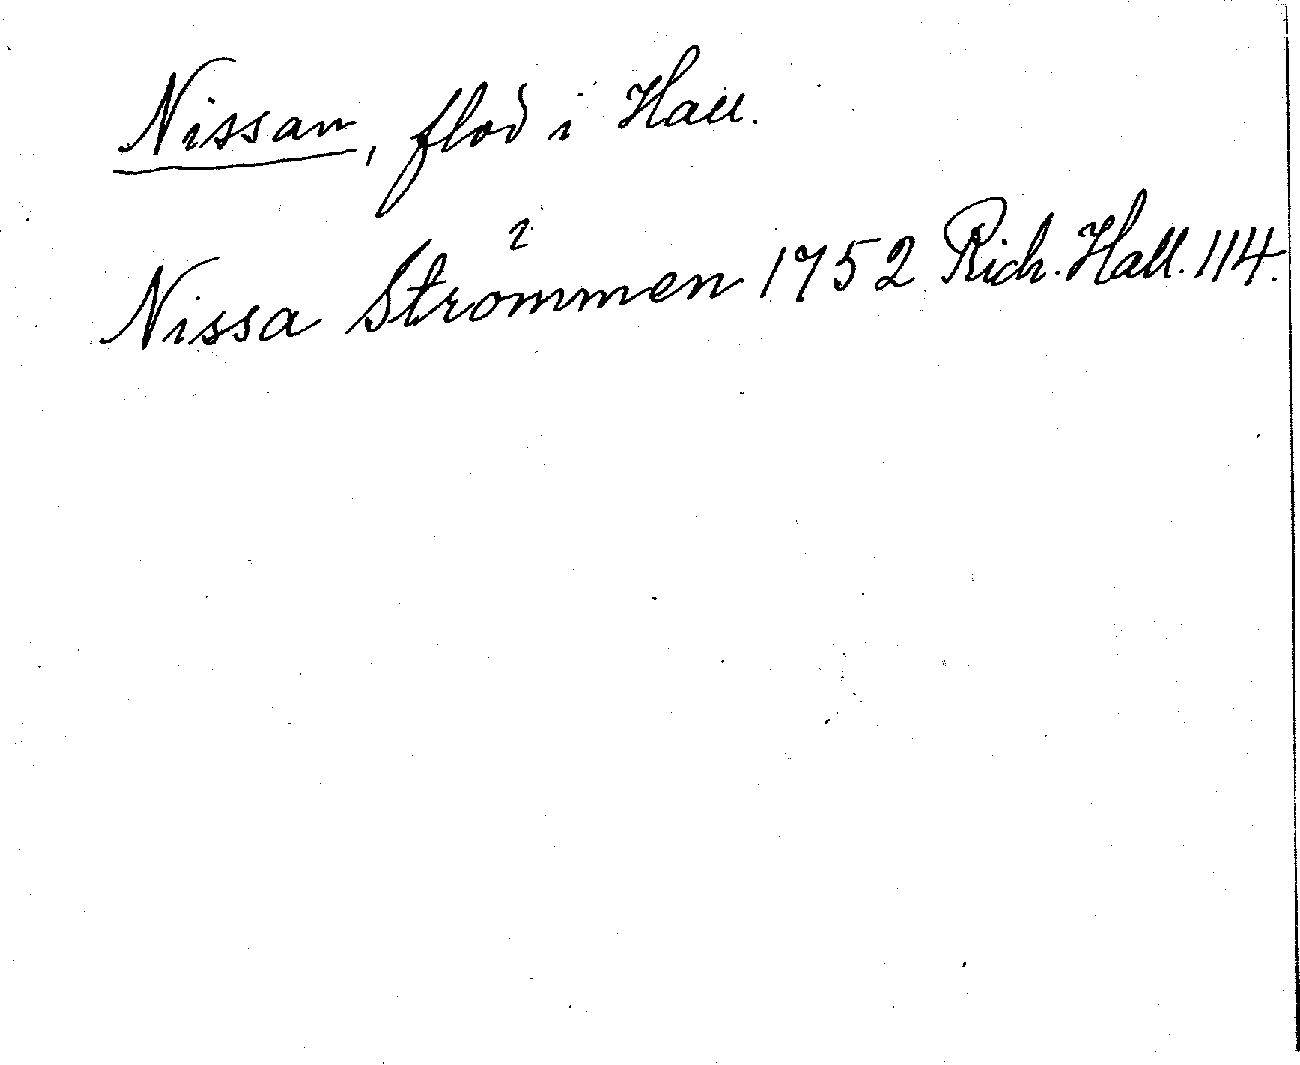 Nissan, flod i Hall.
Nissa Strömmen 1752 Rich. Hall. 114.